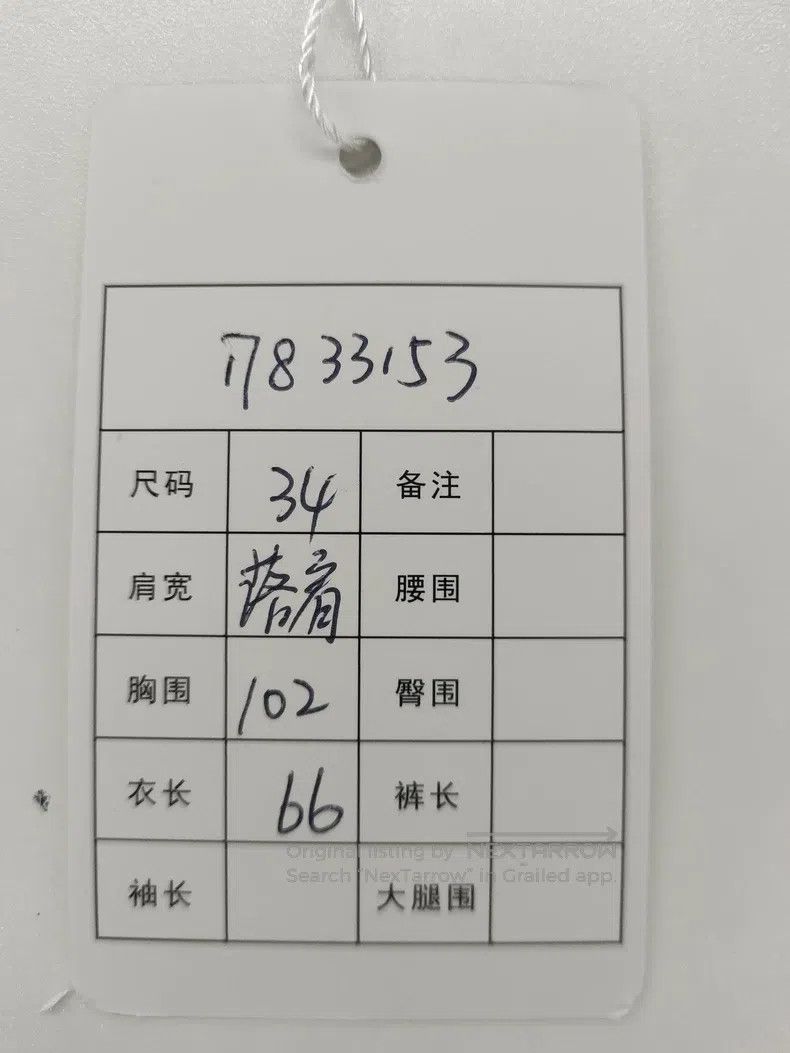 17833153
尺码 34 备注
肩宽 落肩 腰围
胸围 102 臀围
衣长 66 裤长
Original listing by NEXTARROW
Search "NexTarrow" in Grailed app.
袖长 大腿围